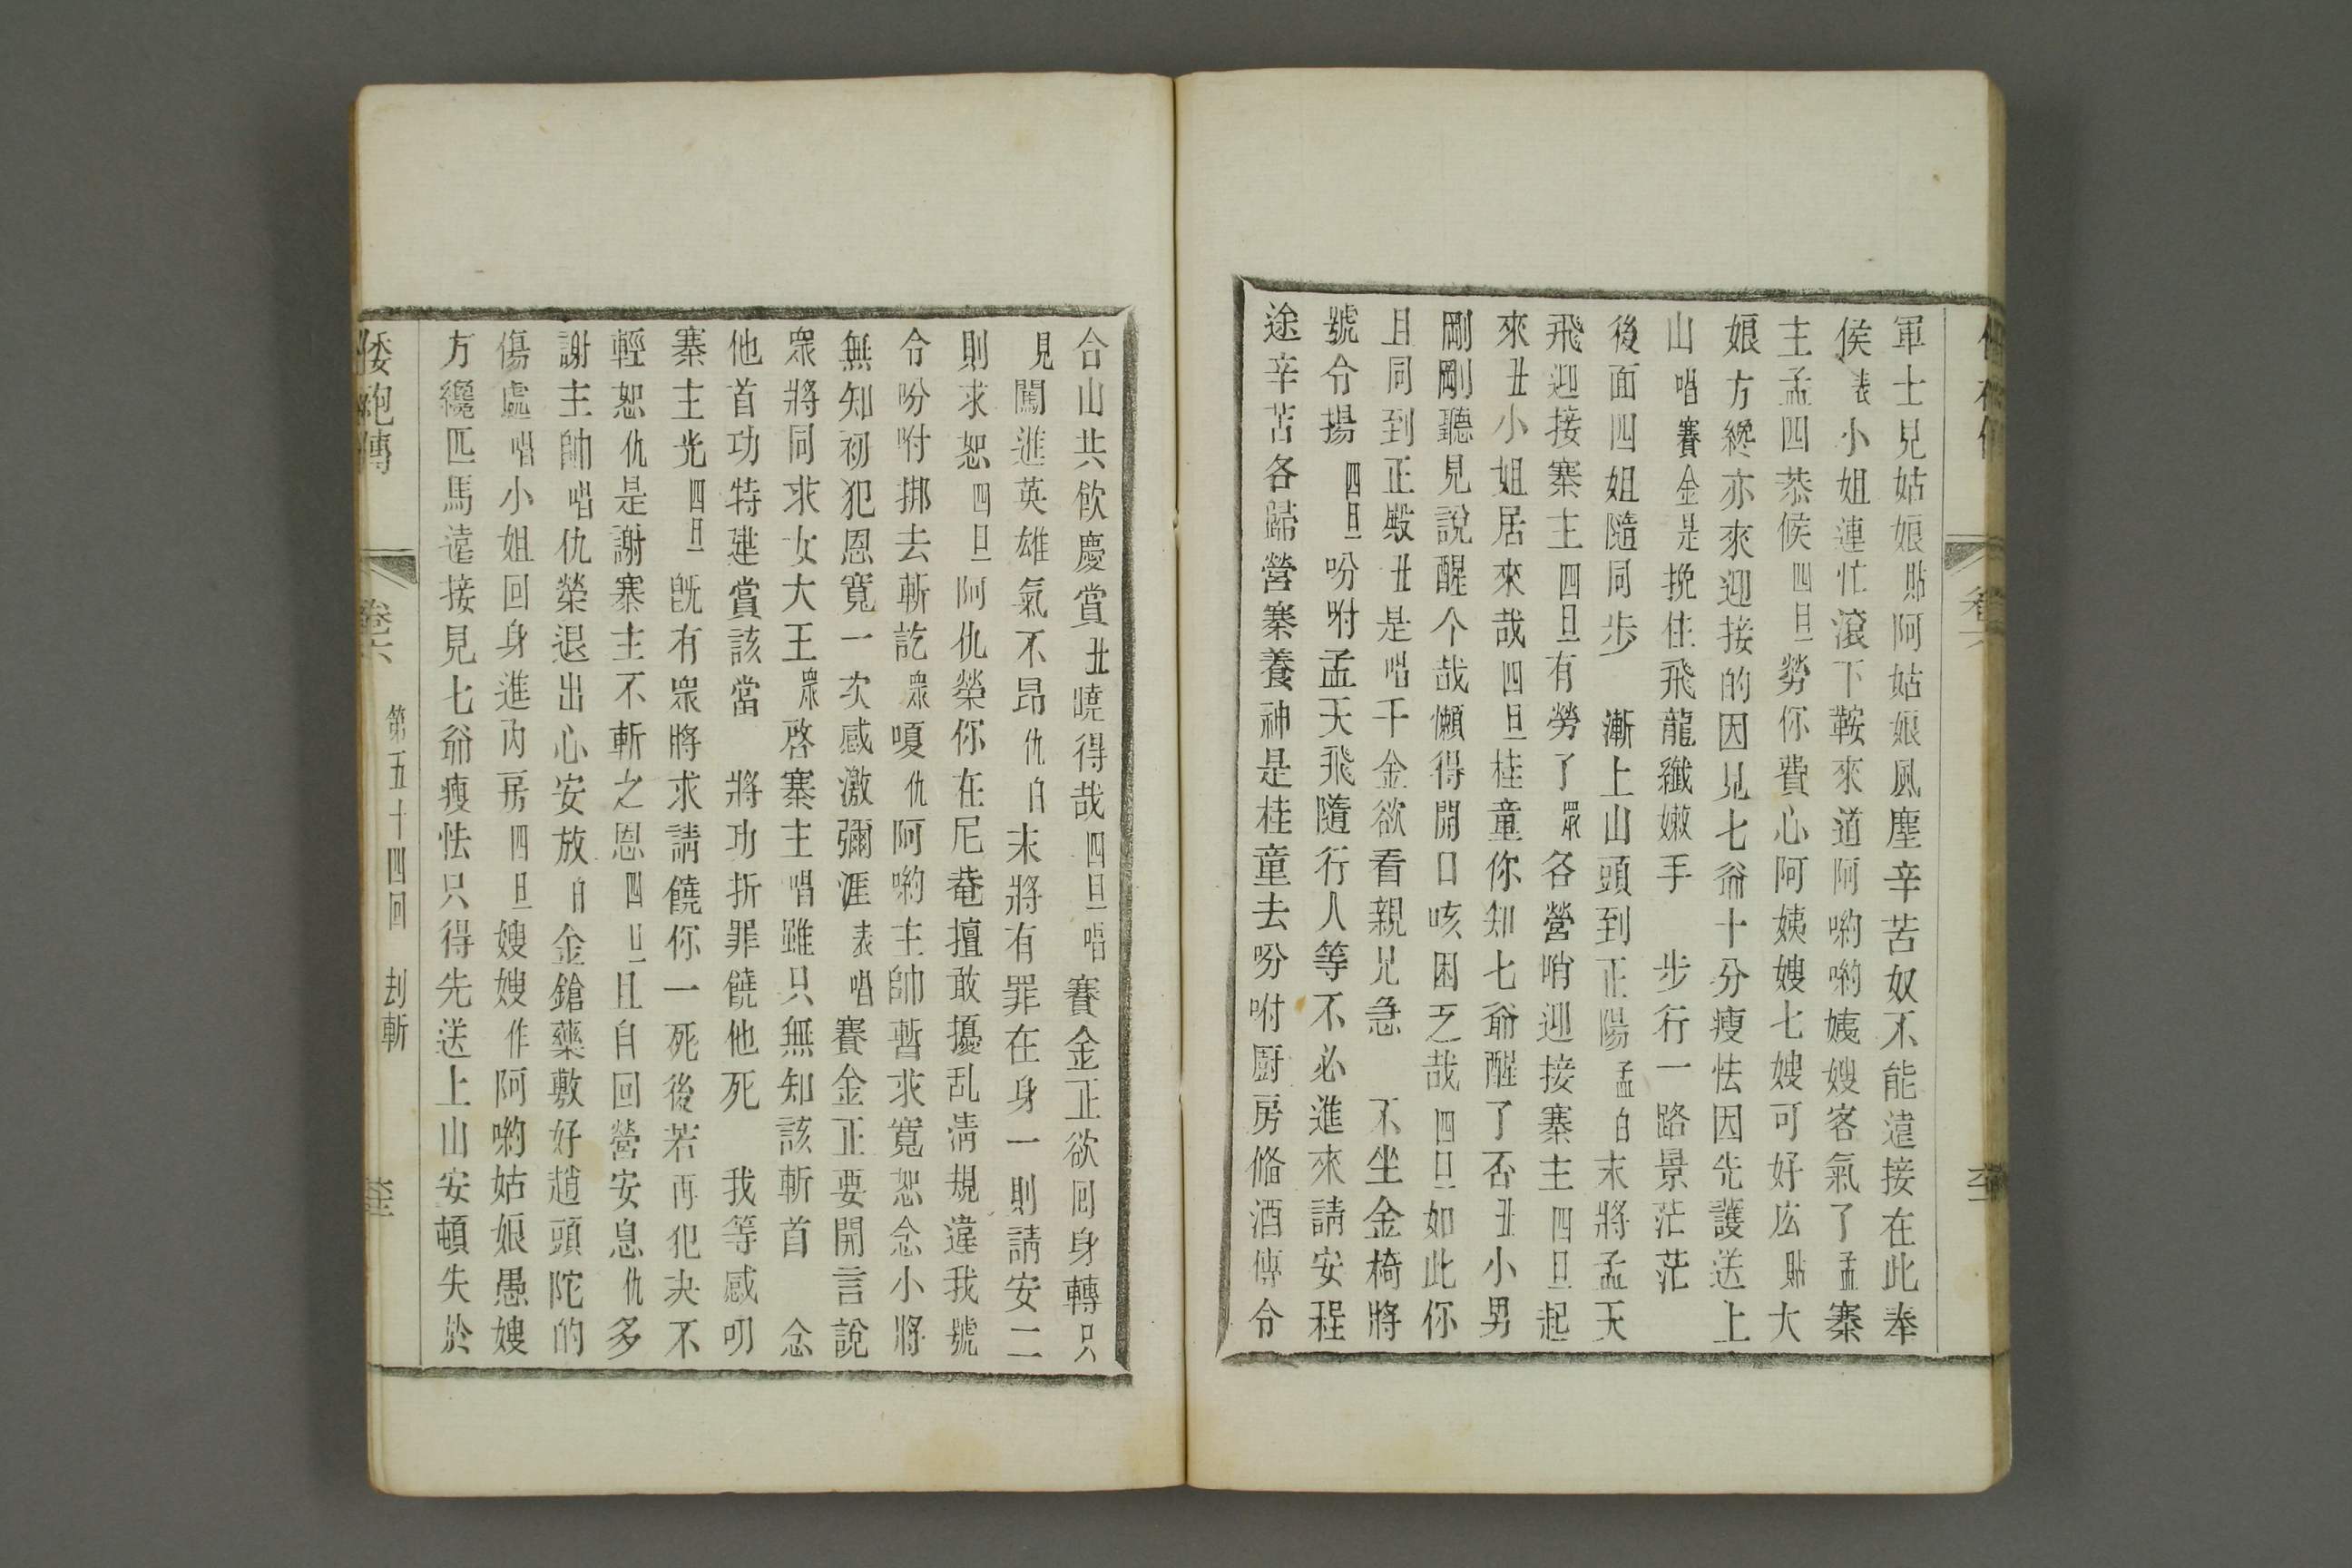 軍士見姑娘貼阿姑娘風塵辛苦奴不能遠接在此奉
侯表小姐連忙滾下鞍來道阿喲喲姨嫂客氣了孟寨
主孟四恭候四旦勞你費心阿姨嫂七嫂可好広貼大
娘方纔亦來迎接的因見七爺十分瘦怯因先護送上
山唱賽金是挽住飛龍纖嫩手 步行一路景茫茫
後面四姐隨同步 漸上山頭到正陽孟白末將孟天
飛迎接寨主四旦有勞了眾各營哨迎接寨主四旦起
來丑小姐居來哉四旦桂童你知七爺醒了否丑小男
剛剛聽見說醒个哉懶得開口咳困乏哉四旦如此你
且同到正殿丑是唱千金欲看親兄急 不坐金椅將
號令揚四旦吩咐孟天飛隨行人等不必進來請安程
途辛苦各歸營寨養神是桂童去吩咐厨房俻酒傳令
合山共飲慶賞丑曉得哉四旦唱賽金正欲囘身轉只
見闖進英雄氣不昂仇白末將有罪在身一則請安二
則求恕四旦阿仇榮你在尼菴擅敢擾乱清規違我號
令吩咐挷去斬訖眾嗄仇阿喲主帥暫求寬恕念小將
無知初犯恩寬一次感激彌涯表唱賽金正要開言說
眾將同求女大王眾啓寨主唱雖只無知該斬首 念
他首功特建賞該當 將功折罪饒他死 我等感叨
寨主光四旦旣有眾將求請饒你一死後若再犯决不
輕恕仇是謝寨主不斬之恩四旦且自回營安息仇多
謝主帥唱仇榮退出心安放白金鎗藥敷好趙頭陀的
傷處唱小姐回身進內房四旦嫂嫂作阿喲姑娘愚嫂
方纔匹馬遠接見七爺瘦怯只得先送上山安頓失於
倭袍傳 卷六 第五十四回 刦斬